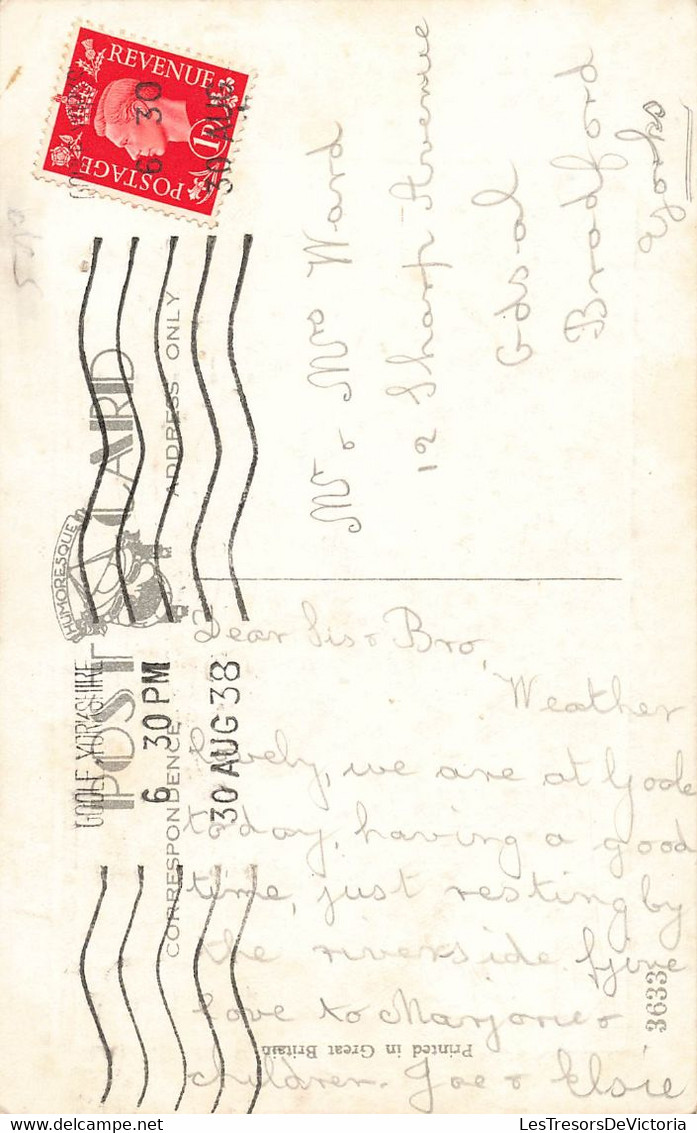 REVENUE
POSTAGE
1D
GOOLE YORKSHIRE
6 30 PM
30 AUG 38
HUMORESQUE
POST CARD
CORRESPONDENCE
ADDRESS ONLY
Mr & Mrs Ward
12 Sharp Avenue
Odsal
Bradford
Yorks
Dear Sis & Bro,
Weather
lovely, we are at Goole
today, having a good
time, just resting by
the riverside. Give
love to Marjorie &
children. Joe & Elsie
Printed in Great Britain
3633
LesTresorsDeVictoria